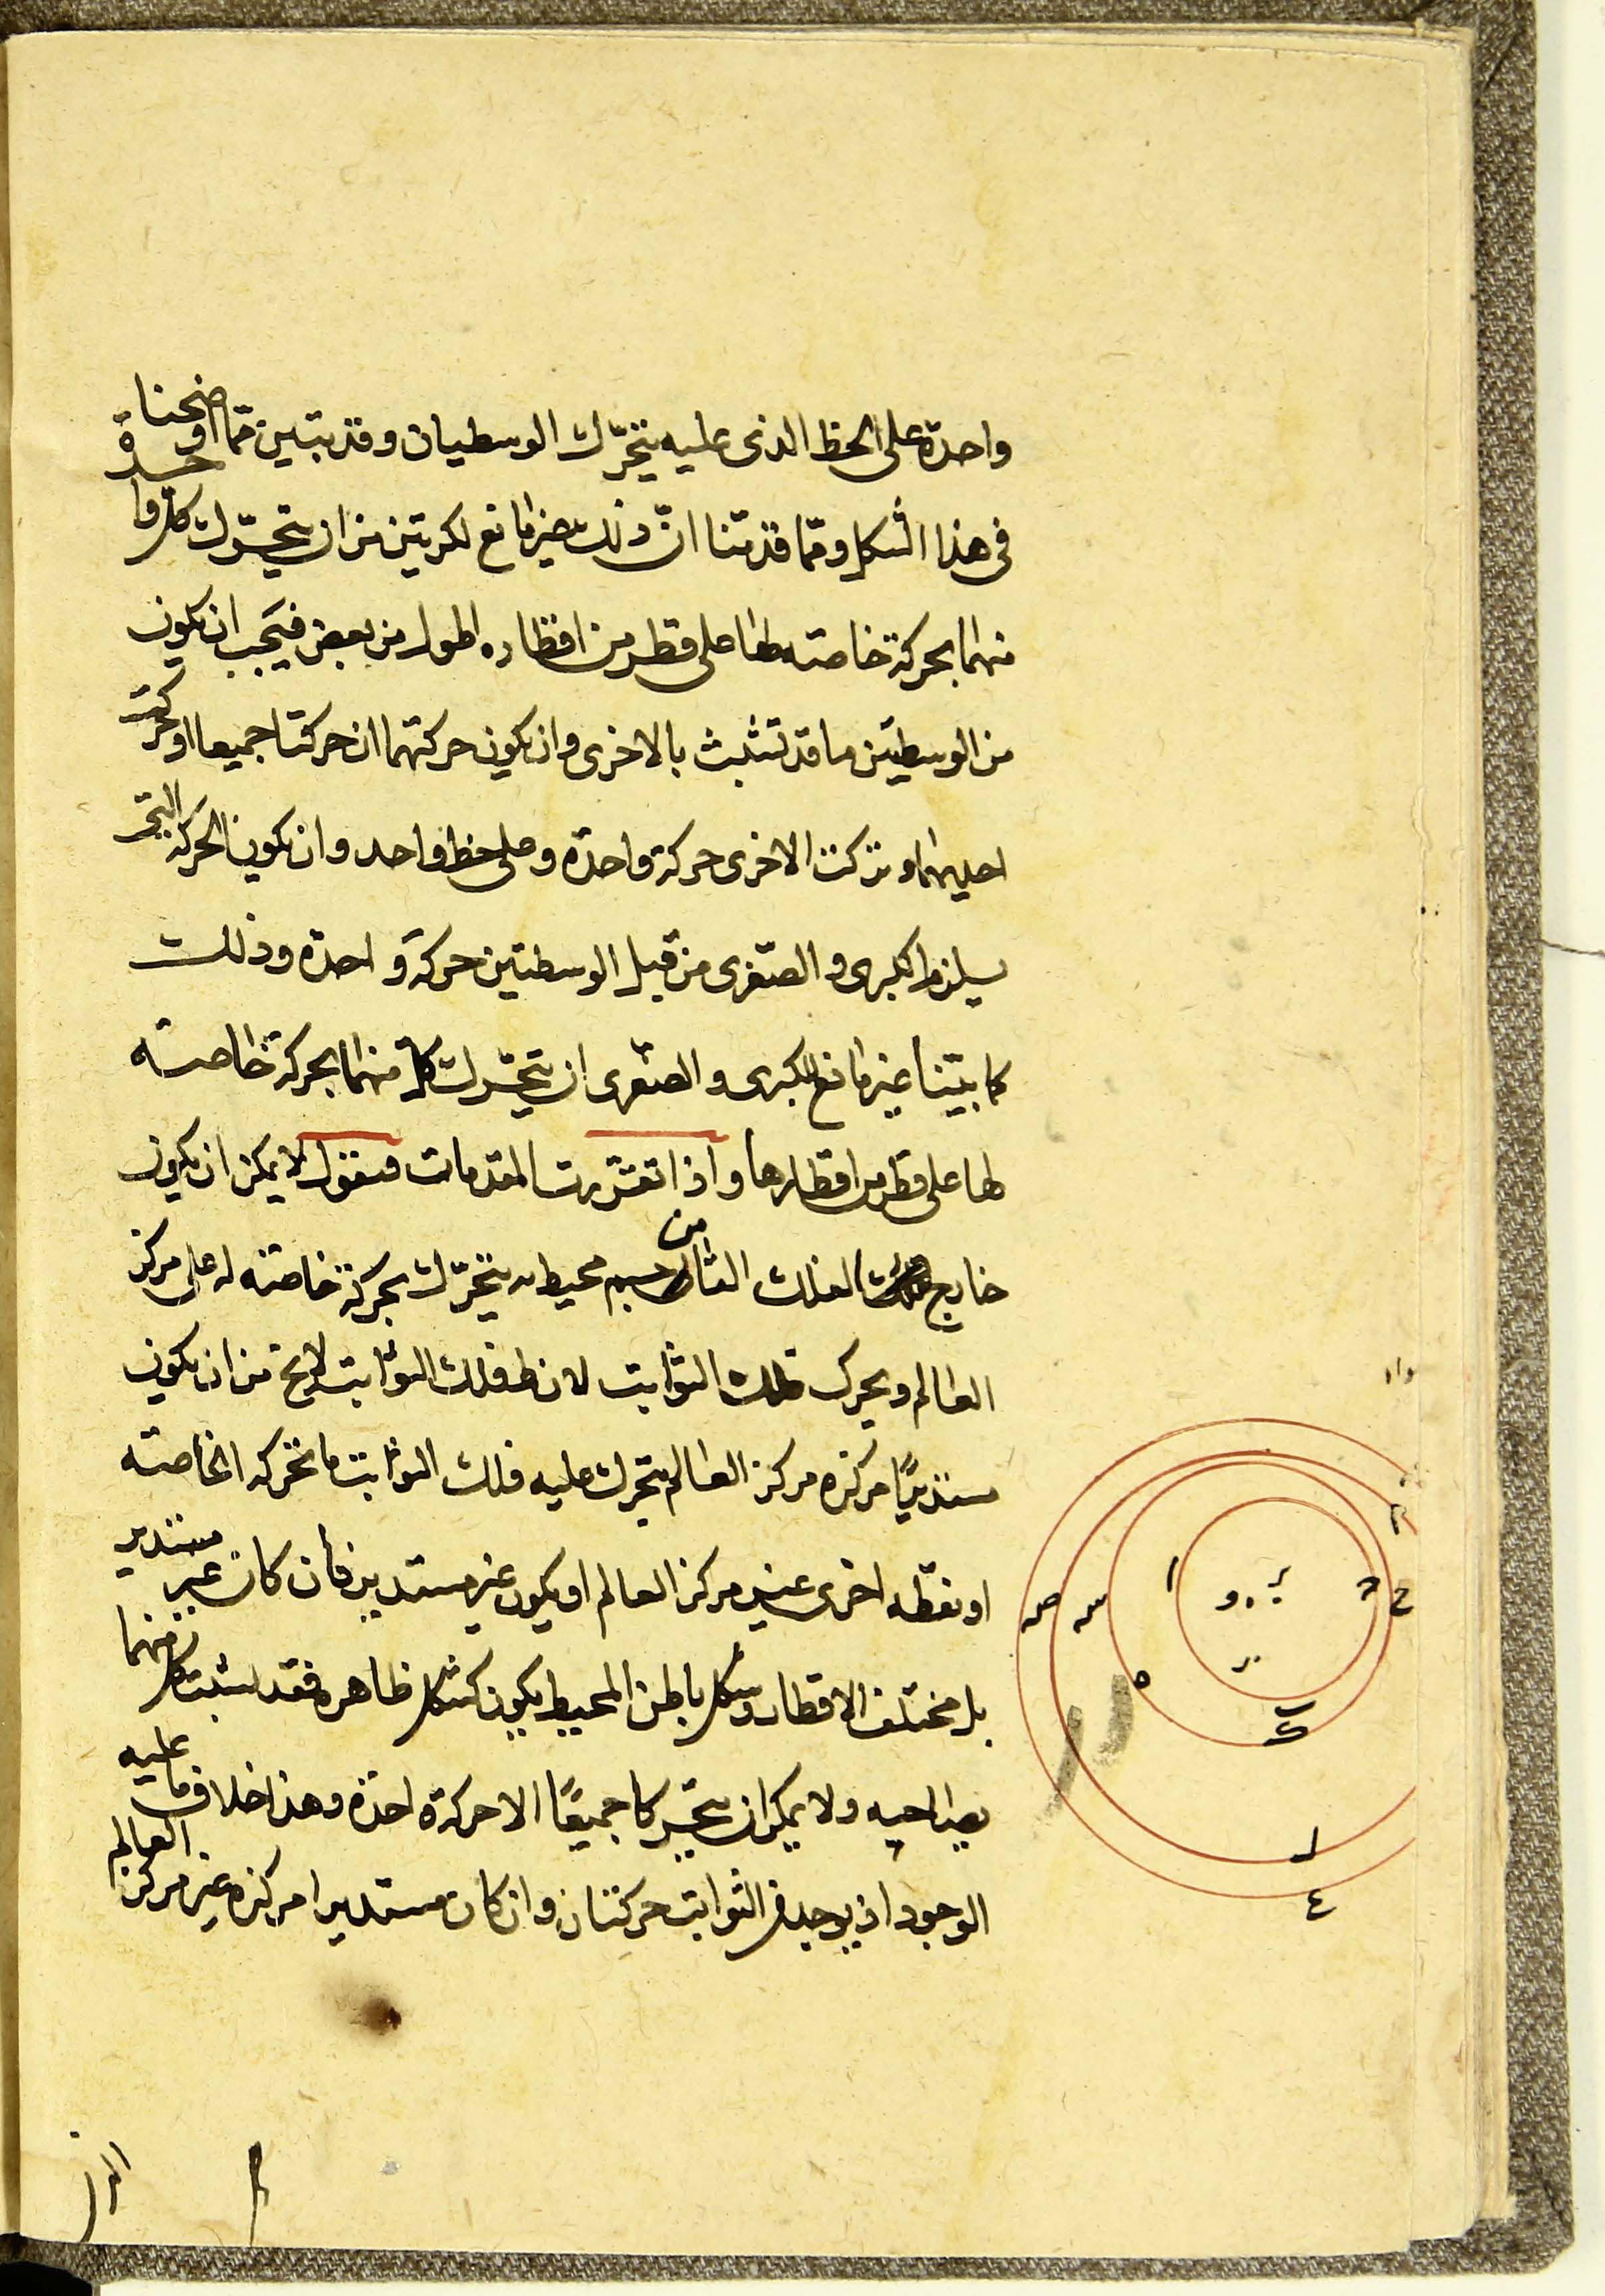 واحدة على الخط الذى عليه يتحرّك الوسطيان وقد تبيّن ممّا اوضحنا
فى هذا الشكل وممّا قدمنا انّ ذلك غير مانع لكريتين من ان يتحرّك كل واحدة
منهما بحركة خاصته لها على قطر من اقطاره اطول من بعض فيجب ان يكون
من الوسطيتين ما قد تشبث بالاخرى وان يكون حركتهما ان حركتا جميعا او حركت
احديهما وتركت الاخرى حركة واحدة وعلى خط واحد وان يكون الحركة التى
يلزم الكبرى والصّغرى من قبل الوسطتين حركة واحدة وذلك
كما بيّنا غير مانع للكبرى والصّغرى ان يتحرّك كل منهما بحركة خاصته
لها على قطر من اقطارها واذا تقرّرت المقدمات فنقول لا يمكن ان يكون
خارج الفلك الثامن جسم محيط به يتحرّك بحركة خاصته له على مركز
العالم ويحرك فلك الثوابت لان فلك الثوابت لا يخ من ان يكون
مستديرًا مركزه مركز العالم يتحرك عليه فلك الثوابت بحركته الخاصته
او نقطه اخرى غير مركز العالم او يكون غير مستدير فان كان غير مستدير
بل مختلف الاقطار وشكل باطن المحيط يكون كشكل ظاهره فقد تشبث كل منهما
بصاحبه ولا يمكن ان يتحركا جميعًا الا حركة واحدة وهذا خلاف ما عليه
الوجود اذ يوجد فى الثوابت حركتان وان كان مستديرا مركزه غير مركز العالم
ح
ا
و
ر
ب
ه
س
ص
ك
ل
ع